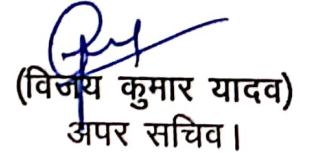 (विजय कुमार यादव)
अपर सचिव।